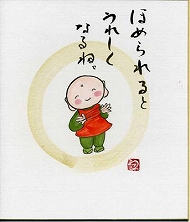 ほめられると
うれしく
なるね。